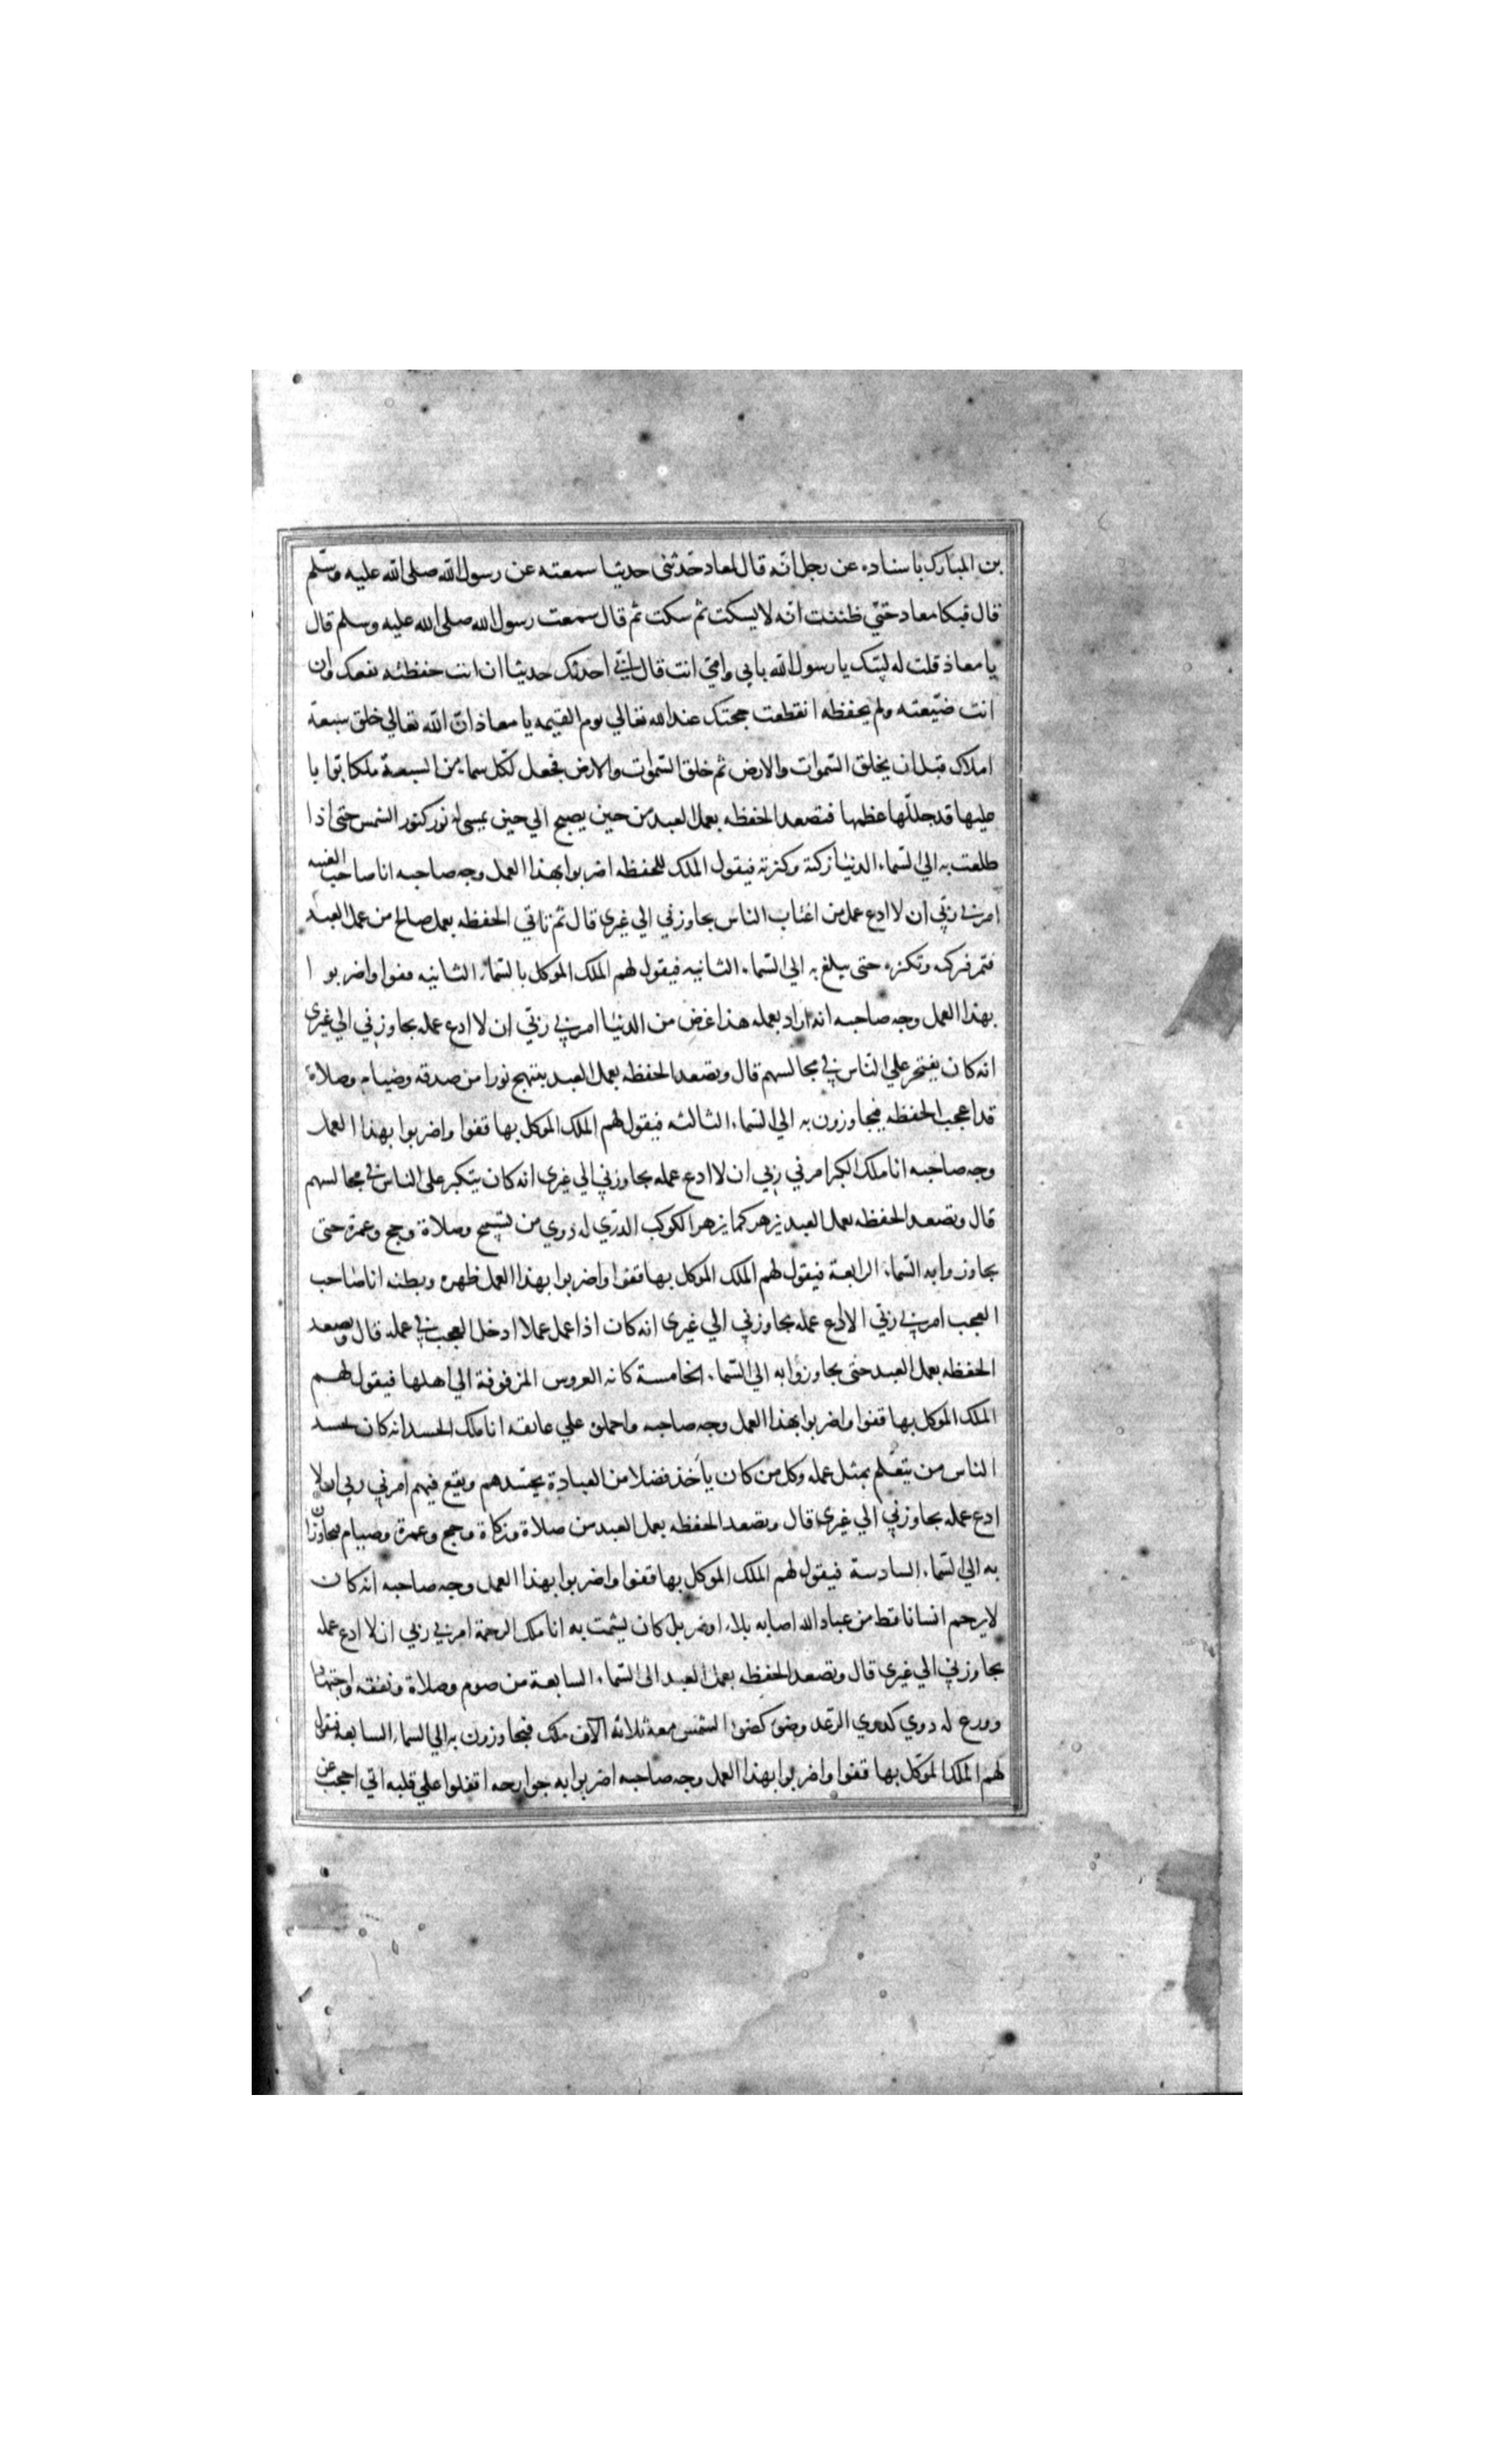 بن المبارك باسناده عن رجل انّه قال لمعاد حّدثنى حديثا سمعته عن رسول الله صلى الله عليه وسّلم
قال فبكا معاد حتّي ظننت انّه لا يسكت ثم سكت ثم قال سمعت رسول الله صلى الله عليه وسلم قال
يا معاذ قلت له لبّيك يا رسول الله بابي وامّي انت قال انّي احدثك حديثا ان انت حفظته نفعك وان
انت ضّيعته ولم يحفظه انقطعت حجتك عند الله تعالي يوم القيمه يا معاذ انّ الله تعالي خلق سبعة
املاك قبل ان يخلق السّموات والارض ثم خلق السّموات والارض فجعل لكّل سماء من السبعة ملكا بوّابا
عليها قد جللّها عظمها فتصعد الحفظه بعمل العبد من حين يصبح الي حين يمسى له نور كنور الشمس حتى اذا
طلعت به الي السّماء الدنيا زكته وكثرته فيقول الملك للحفظه اضربوا بهذا العمل وجه صاحبه انا صاحب الغيبه
امرني ربّي ان لا ادع عمل من اغتاب الناس يجاوزني الي غيري قال ثم تاتي الحفظه بعمل صالح من عمل العبد
فتمر فزكيه وتكثره حتى يبلغ به الي السّماء الثانيه فيقول لهم الملك الموكل بالسّماء الثانيه قفوا واضربوا
بهذا العمل وجه صاحبه انه اراد بعمله هذا غرض من الدنيا امرني ربّي ان لا ادع عمله يجاوزني الي غيري
انه كان يفتخر علي النّاس في مجالسهم قال وتصعد الحفظه بعمل العبد يبتهج نورا من صدقه وصيام وصلاة
قد اعجب الحفظه فيجاوزون به الي السّماء الثالثه فيقول لهم الملك الموكل بها قفوا واضربوا بهذا العمل
وجه صاحبه انا ملك الكبر امرني ربي ان لا ادع عمله يجاوزني الي غيري انه كان يتكبر على الناس في مجالسهم
قال وتصعد الحفظه بعمل العبد يزهر كما يزهر الكوكب الدرّي له دوي من تسبيح وصلاة وحج وعمرة حتى
يجاوزوا به السّماء الرابعة فيقول لهم الملك الموكل بها قفوا واضربوا بهذا العمل ظهره وبطنه انا صاحب
العجب امرني ربّي الا ادع عمله يجاوزني الي غيري انه كان اذا عمل عملا ادخل العجب في عمله قال وتصعد
الحفظه بعمل العبد حتى يجاوزوا به الي السّماء الخامسة كانه العروس المزفوفة الي اهلها فيقول لهم
الملك الموكل بها قفوا واضربوا بهذا العمل وجه صاحبه واحملن علي عاتقه انا ملك الحسد انه كان يحسد
الناس من يتعّلم بمثل عمله وكل من كان يأخذ فضلا من العبادة يحسّدهم ويقع فيهم امرني ربي ان لا
ادع عمله يجاوزني الي غيري قال وتصعد الحفظه بعمل العبد من صلاة وزكاة وحج وعمرة وصيام فيجاوزون
به الي السّماء السادسة فيقول لهم الملك الموكل بها قفوا واضربوا بهذا العمل وجه صاحبه انّه كان
لا يرحم انسانا قط من عباد الله اصابه بلاء او ضر بل كان يشمت به انا ملك الرحمة امرني ربي ان لا ادع عمله
يجاوزني الي غيري قال وتصعد الحفظه بعمل العبد الى السّماء السابعة من صوم وصلاة ونفقه واجتهاد
وورع له دوي كدوي الرّعد وضوء كضوء الشمس معه ثلاثة آلاف ملك فيجاوزون به الي السماء السابعه فيقول
لهم الملك الموّكل بها قفوا واضربوا بهذا العمل وجه صاحبه اضربوا به جوارحه اقفلوا علي قلبه انّي احجب عن